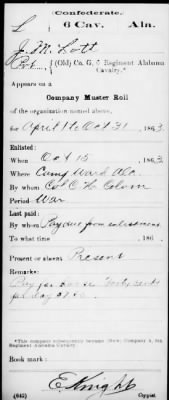 Confederate.
L 6 Cav. Ala.
J. M. Lott
Pvt., (Old) Co. G, 6 Regiment Alabama
Cavalry.*
Appears on a
Company Muster Roll
of the organization named above,
for April 1 to Oct 31, 1863.
Enlisted:
When Oct 15, 1863.
Where Camp Ala.
By whom Col C. H.
Period War
Last paid:
By whom Pay due from enlistment
To what time , 186 .
Present or absent Present
Remarks:
Pay for horse forty cents
per day
*This company subsequently became (New) Company 8th
Regiment Alabama Cavalry.
Book mark:
E. Knight
(642) Copyist.